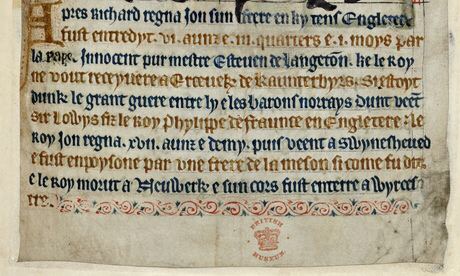 Apres Richard regna Jon sun frere en ky tens Engletere
fust entredyt .vi. aunz e .iii. quarters e .i. moys par
la Pape Innocent pur mestre Esteven de Langeton. ke le roy
ne vout receyvere a Ercevek de Kaunterbyrs. Si estoyt
dunk le grant guere entre ly e les barons norrays dunt vent
sir Lowys fiz le roy Phylippe de Fraunce en Engletere : le
roy Jon regna .xvii. aunz e demy. puis veent a Swynesheved
e fust enpoysone par une frere de la meson si come fu dit
e le roy morut a Neuwerk e sun cors fust enterre a Wyrces
tre.
BRITISH
MUSEUM